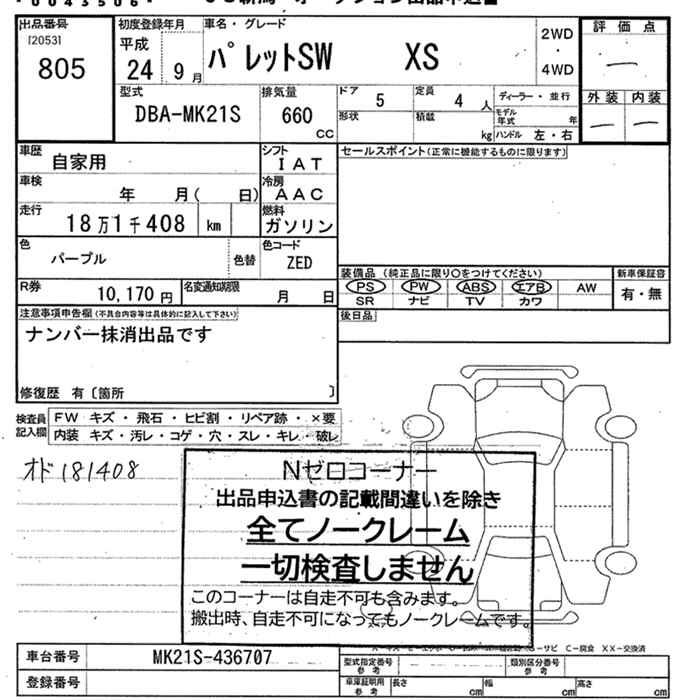 0043506
出品番号
[2053]
805
初度登録年月
平成
24 9月
車名・グレード
パレットSW XS
2WD
・
4WD
評価点
外装 内装
型式
DBA-MK21S
排気量
660
cc
ドア
5
定員
4 人
形状
積載
kg
ディーラー・並行
モデル年式 年
ハンドル 左・右
車歴
自家用
シフト
IAT
車検
年 月( 日)
冷房
AAC
走行
18万1千408 km
燃料
ガソリン
色
パープル
色替
色コード
ZED
R券
10,170円
名変通知期限
月 日
セールスポイント(正常に機能するものに限ります)
装備品(純正品に限り○をつけてください)
PS PW ABS エアB AW
SR ナビ TV カワ
新車保証書
有・無
後日品
注意事項申告欄(不具合内容等は具体的に記入して下さい)
ナンバー抹消出品です
修復歴 有〔箇所 〕
検査員記入欄
FW キズ・飛石・ヒビ割・リペア跡・×要
内装 キズ・汚レ・コゲ・穴・スレ・キレ・破レ
オド181408
Nゼロコーナー
出品申込書の記載間違いを除き
全てノークレーム
一切検査しません
このコーナーは自走不可も含みます。
搬出時、自走不可になってもノークレームです。
サビ C-腐食 XX-交換済
車台番号
MK21S-436707
登録番号
型式指定番号
参考
類別区分番号
参考
車庫証明用
参考
長さ cm
幅 cm
高さ cm